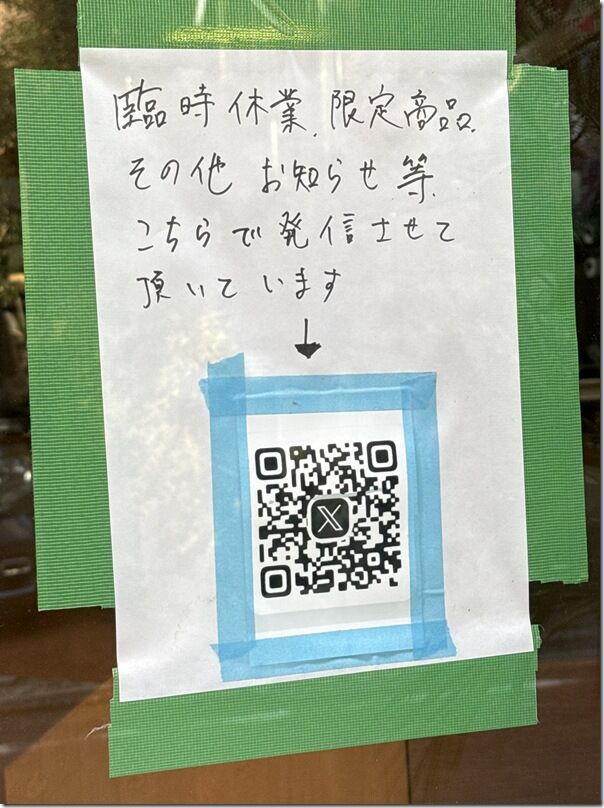 臨時休業、限定商品、
その他 お知らせ等
こちらで発信させて
頂いています
↓
X